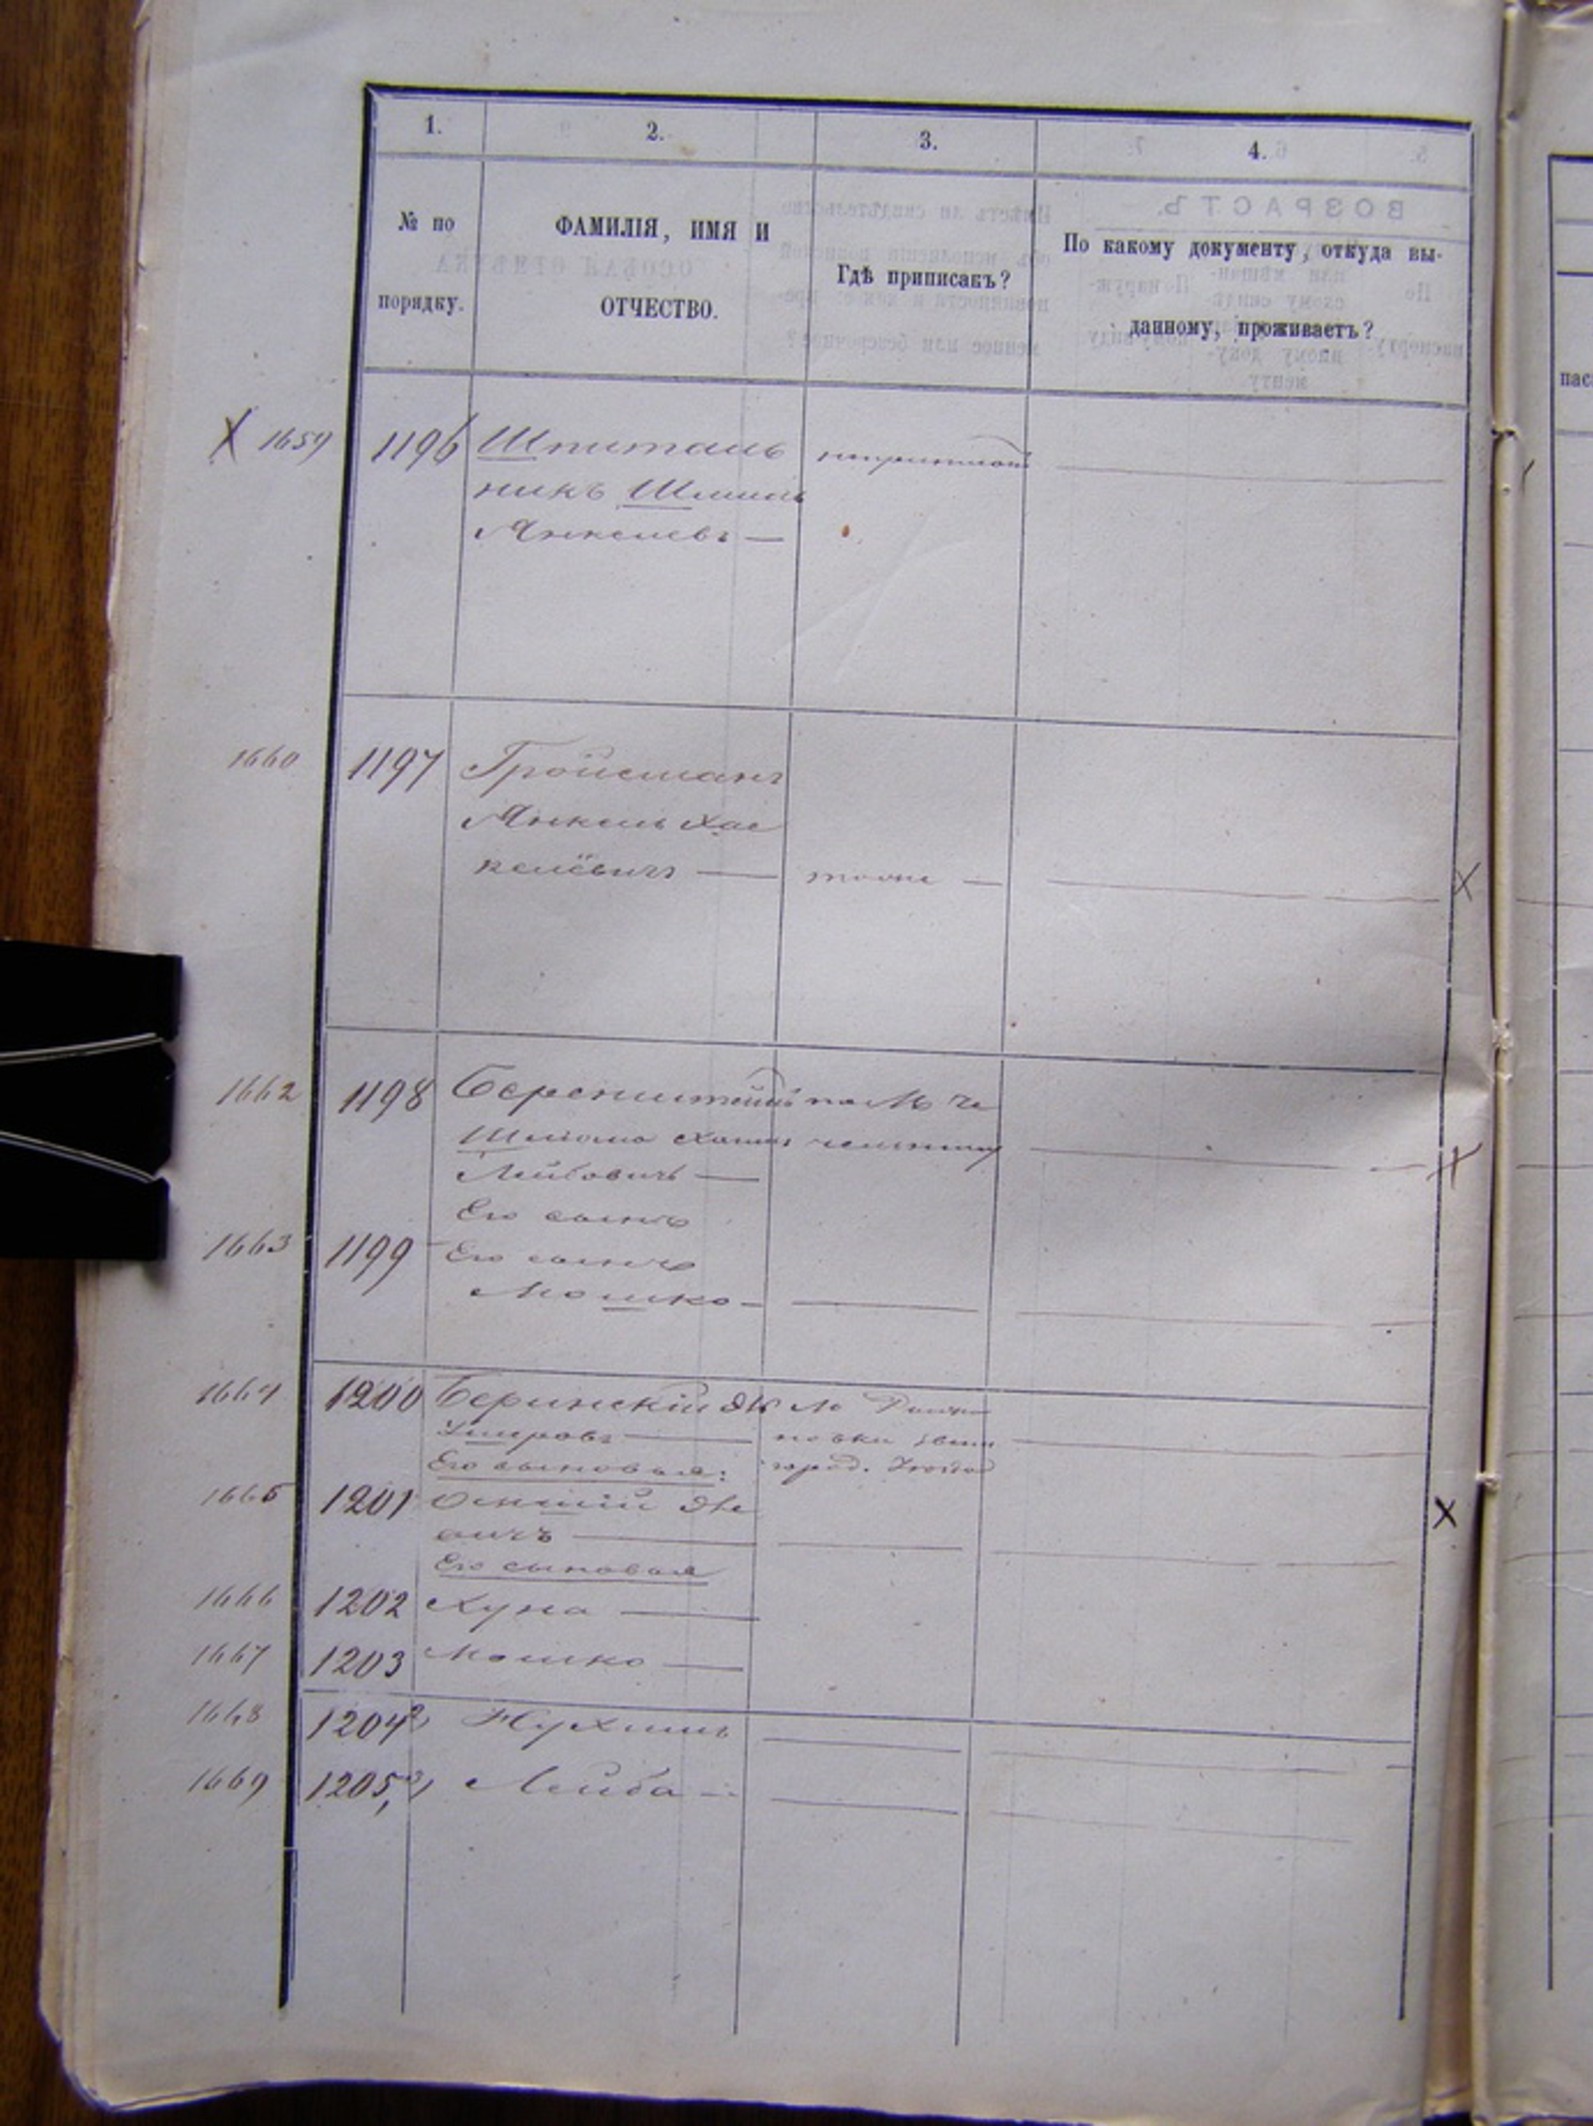 1. 2. 3. 4.
№ по порядку.
ФАМИЛІЯ, ИМЯ И
ОТЧЕСТВО.
Гдѣ приписанъ?
По какому документу, откуда вы-
данному, проживаетъ?
1659 1196 Шпиталь
никъ Шмиль
Янкелевъ —
1660 1197 Гройсманъ
Янкель Хас
келёвичъ — тоже —
1662 1198 Беренштейнъ по М Че
Шліома Хаимъ
Лейбовичъ —
Его сынъ
1663 1199 Его сынъ
Мошко —
1664 1200 Беринскій
городъ.
Его сыновья:
1665 1201
овичъ —
Его сыновья
1666 1202 Хуна —
1667 1203 Мошко —
1668 1204 2) Нухимъ
1669 1205, 3) Лейба —